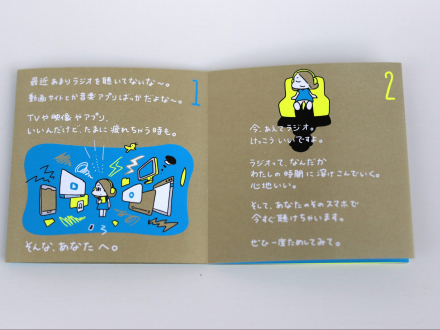 最近あまりラジオを聴いてないな〜。
動画サイトとか音楽アプリばっかだよな〜。
1
TVや映像やアプリ、
いいんだけど、たまに疲れちゃう時も。
そんな、あなたへ。
2
今、あえてラジオ。
けっこういいですよ。
ラジオって、なんだか
わたしの時間に溶けこんでいく。
心地いい。
そして、あなたのそのスマホで
今すぐ聴けちゃいます。
ぜひ一度ためしてみて。